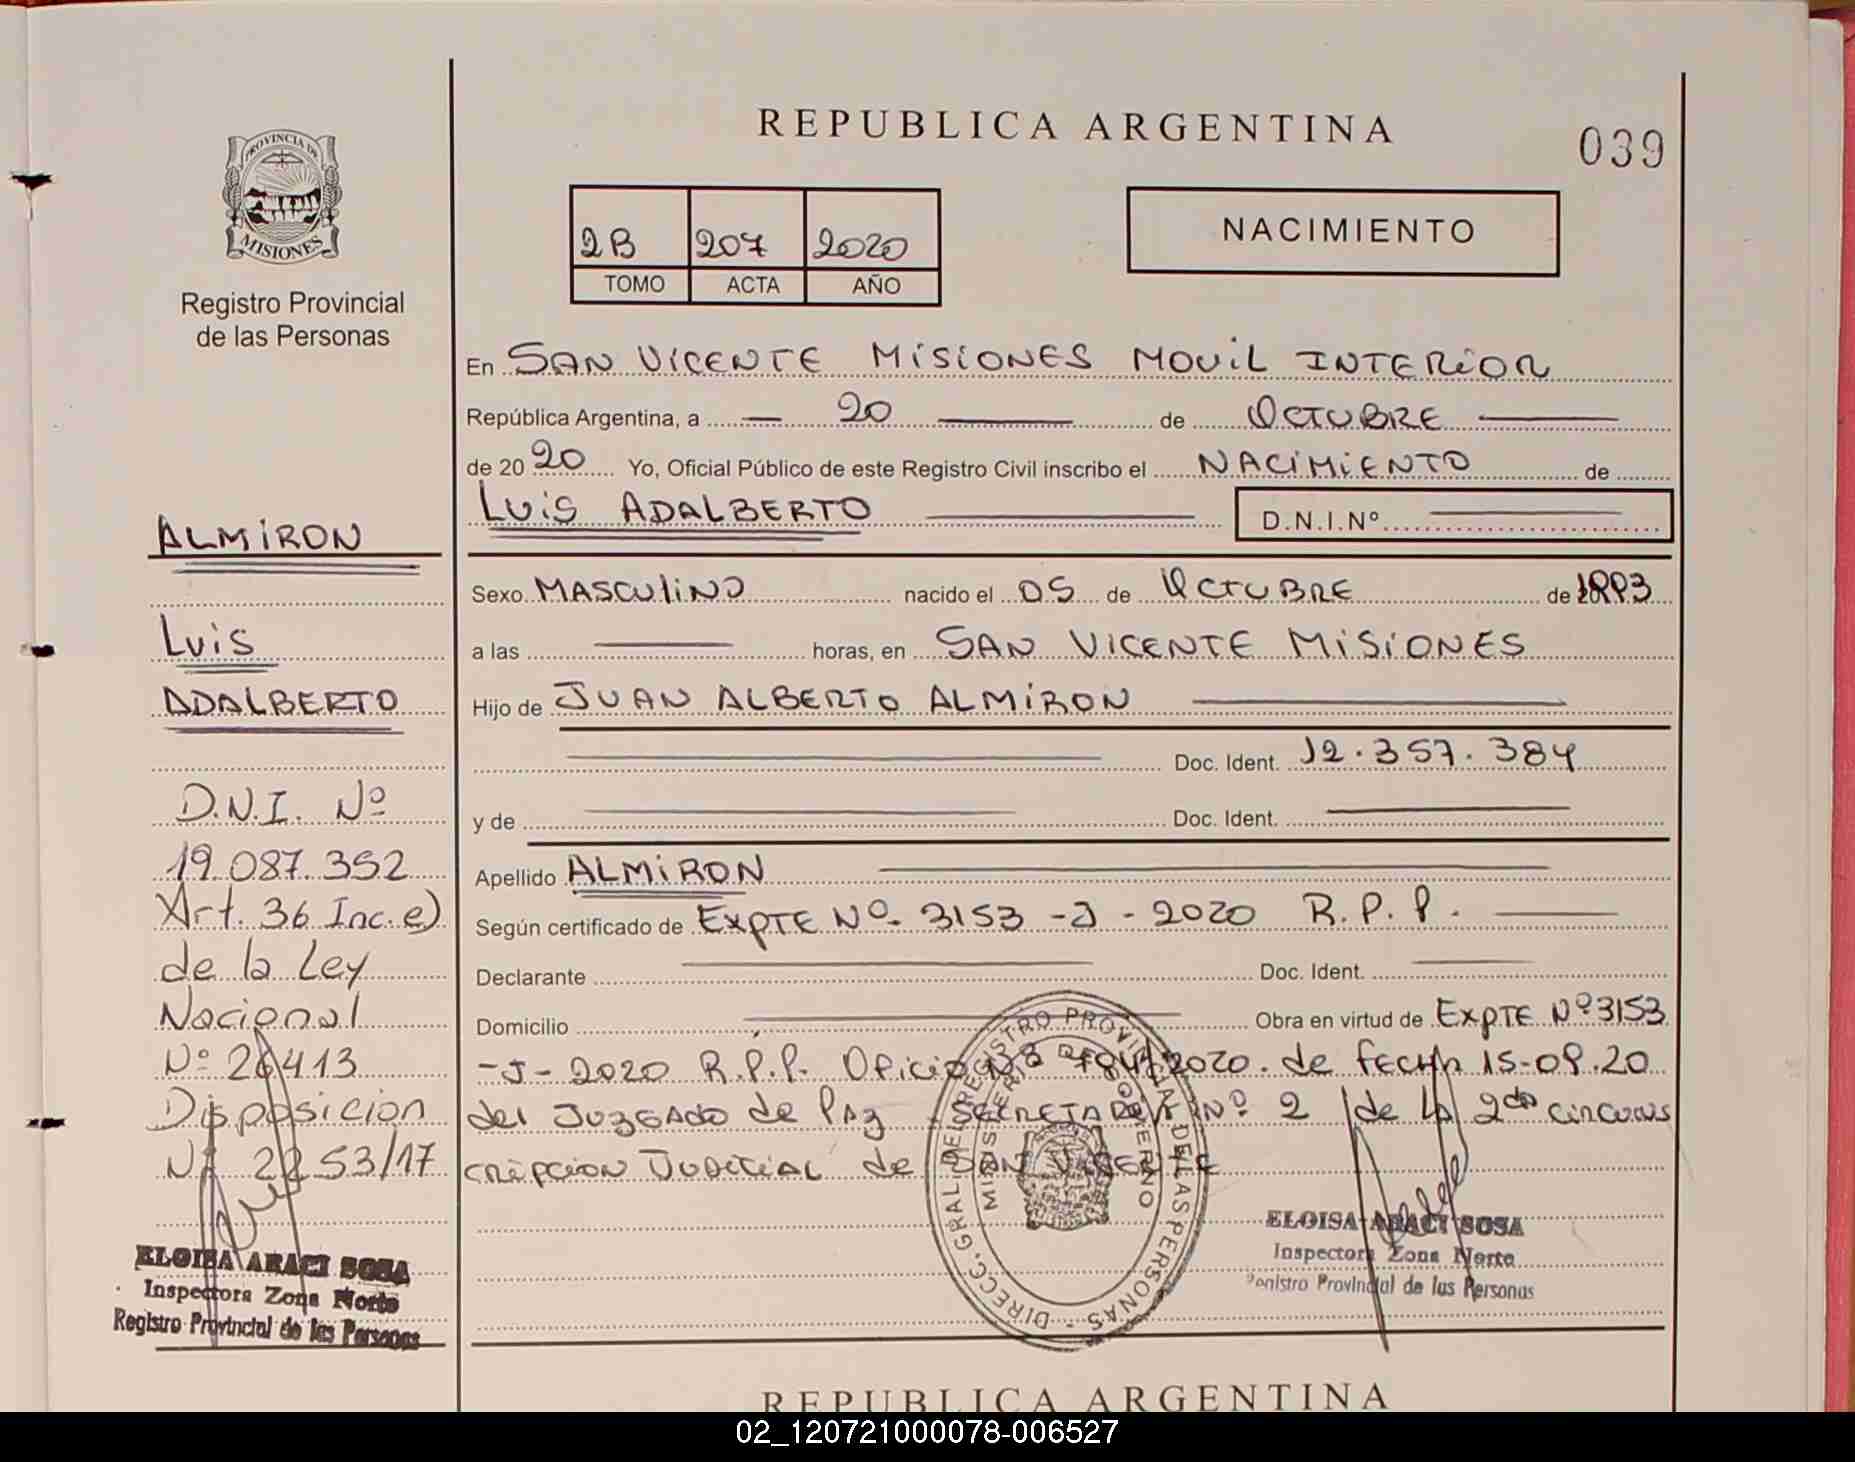 REPUBLICA ARGENTINA
039
PROVINCIA DE
MISIONES
Registro Provincial
de las Personas
2B 207 2020
TOMO ACTA AÑO
NACIMIENTO
En SAN VICENTE MISIONES MOVIL INTERIOR
República Argentina, a 20 de OCTUBRE
de 20 20 Yo, Oficial Público de este Registro Civil inscribo el NACIMIENTO de
LUIS ADALBERTO D.N.I.Nº
ALMIRON
LUIS
ADALBERTO
D.N.I. Nº
19.087.352
Art. 36 Inc. e)
de la Ley
Nacional
Nº 26413
Disposicion
Nº 2253/17
ELOISA ARACI SOSA
Inspectora Zona Norte
Registro Provincial de las Personas
Sexo MASCULINO nacido el 05 de OCTUBRE de 1993
a las horas, en SAN VICENTE MISIONES
Hijo de JUAN ALBERTO ALMIRON
Doc. Ident. 12.357.384
y de Doc. Ident.
Apellido ALMIRON
Según certificado de EXPTE Nº 3153 -J- 2020 R.P.P.
Declarante Doc. Ident.
Domicilio Obra en virtud de EXPTE Nº 3153
-J- 2020 R.P.P. Oficio 2020. de FECHA 15-09.20
del JUZGADO de PAZ SECRETARIA Nº 2 de LA 2da circuns
cripcion JUDICIAL de SAN VICENTE
DIRECC. GRAL. DEL REGISTRO PROVINCIAL DE LAS PERSONAS -
MINISTERIO DE GOBIERNO
ELOISA ARACI SOSA
Inspectora Zona Norte
Registro Provincial de las Personas
REPUBLICA ARGENTINA
02_120721000078-006527